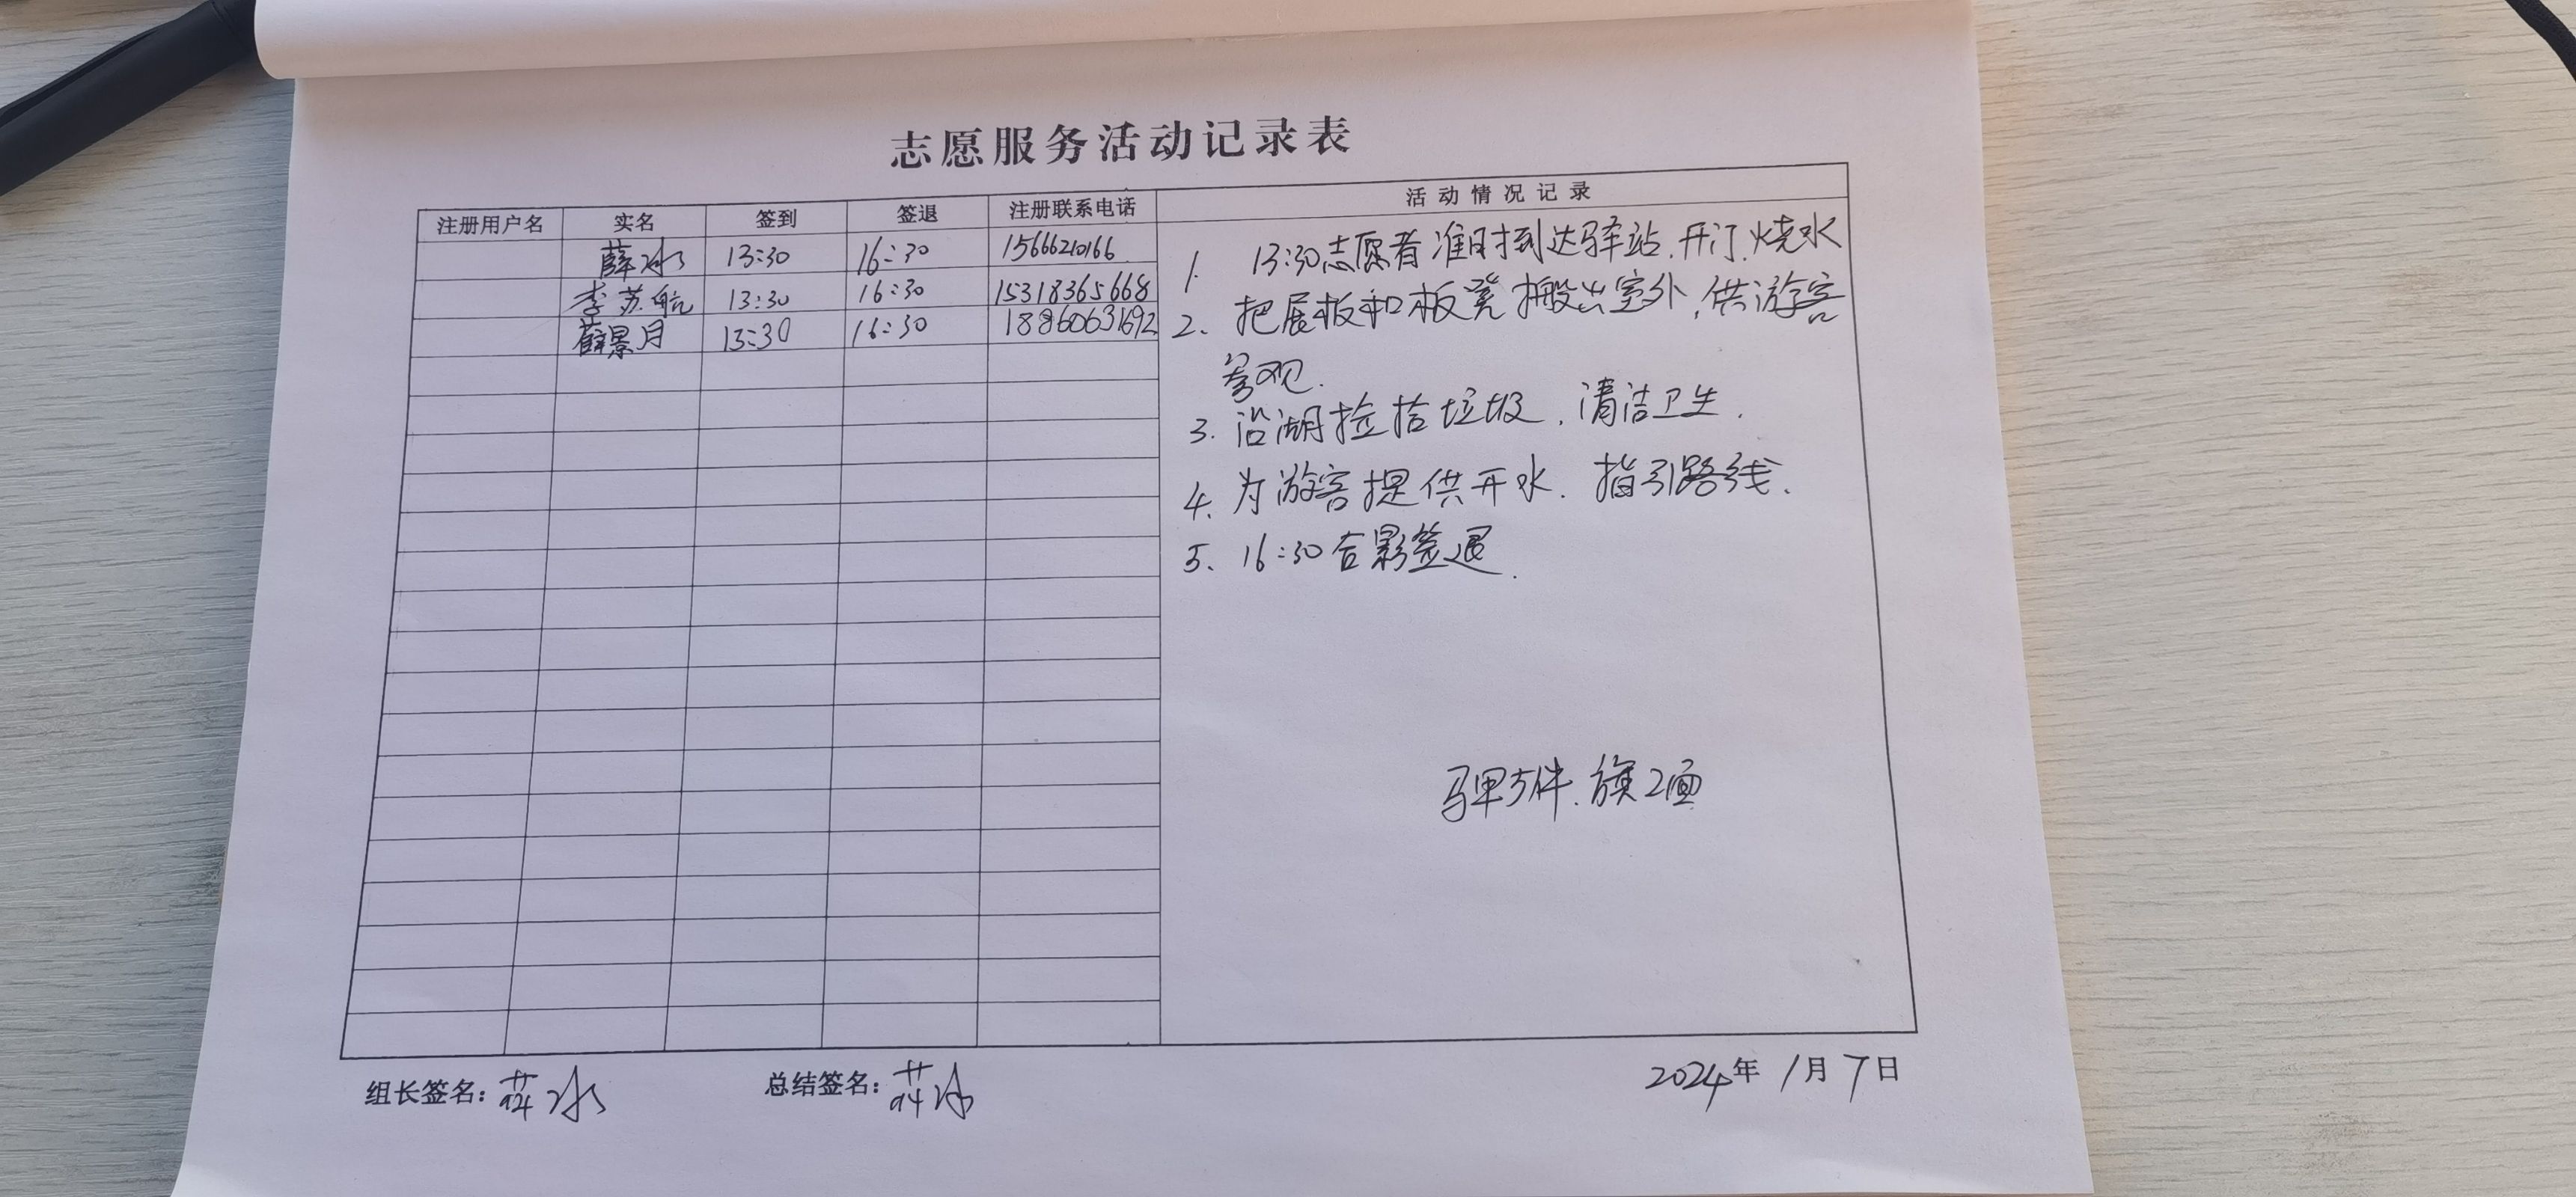 志愿服务活动记录表
注册用户名 实名 签到 签退 注册联系电话 活动情况记录
薛冰 13:30 16:30 15666210166
李苏航 13:30 16:30 15318365668
薛景月 13:30 16:30 18860631692
1. 13:30志愿者准时到达驿站.开门.烧水
2. 把展板和板凳搬出室外,供游客
参观.
3. 沿湖捡拾垃圾.清洁卫生.
4. 为游客提供开水.指引路线.
5. 16:30合影签退.
马甲5件.旗2面
组长签名:薛冰 总结签名:薛冰 2024年1月7日